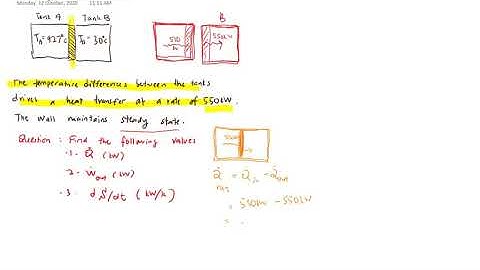 Monday, 12 October, 2020 11:11 AM
Tank A Tank B
TA = 427°C TB = 30°C
550
B
550kW
The temperature differences between the tanks
drives a heat transfer at a rate of 550kW.
The wall maintains steady state.
Question : Find the following values
1. Q̇ (kW)
2. Ẇout (kW)
3. dS/dt (kW/k)
Q̇ = Q̇in - Q̇out
= 550kW - 550kW
=